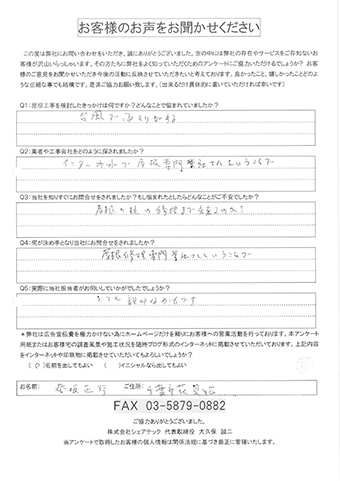 お客様のお声をお聞かせください
この度は弊社にお問い合わせをいただき、誠にありがとうございました。世の中には弊社の存在やサービスをご存知ないお
客様が沢山いらっしゃいます。その方たちに弊社をよく知っていただくためのアンケートにご協力いただけるでしょうか？お客
様のご意見をお聞かせいただき今後の活動に反映させていただきたいと考えております。良かったこと、嬉しかったことどのよ
うな些細な事でも結構です。是非ご協力お願い致します。（出来るだけ具体的に書いていただければ幸いです）
Q1：屋根工事を検討したきっかけは何ですか？どんなことで悩まれていましたか？
台風で雨もりがする
Q2：業者や工事会社をどのように探されましたか？
インターネットで屋根専門会社さんということで
Q3：当社を知りすぐにお問合せをされましたか？もし悩まれたとしたらどんなことがご不安でしたか？
屋根の
Q4：何が決め手となり当社にお問合せをされましたか？
屋根修理専門会社ということで
Q5：実際に当社担当者がお伺いしていかがでしたでしょうか？
とても
＊弊社は広告宣伝費を極力かけない為にホームページだけを頼りにお客様への営業活動を行っております。本アンケート
用紙またはお客様宅の調査風景や施工状況を随時ブログ形式のインターネットに掲載させていただいております。上記内容
をインターネットや印刷物に掲載させていただいてもよろしいでしょうか？
（○）名前を出してもよい （ ）イニシャルなら出してもよい
お名前： ご住所： 千葉市花見川区
FAX 03-5879-0882
ご協力ありがとうございました。
株式会社シェアテック 代表取締役 大久保 誠二
当アンケートで取得したお客様の個人情報は関係法規に基づき厳正に管理いたします。